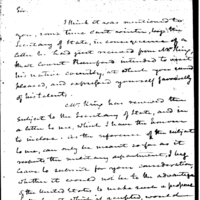 Sir.
I think it was mentioned to
you, some time last winter, by the
Secretary of State, in consequence of a
letter he had just received from Mr King,
that Count Rumford intended to visit
his native country, at which you were
pleased, and expressed yourself favorably
of his talents.
Mr King has renewed the
subject to the Secretary of State, and in
a letter to me, which I have the honour
to inclose, as the reference of the subject
to me, can only be meant so far as it
respects the military department, I beg
leave to submit for your consideration
whether it would not be to the advantage
of the United States to make such a propose
which, if accepted, would